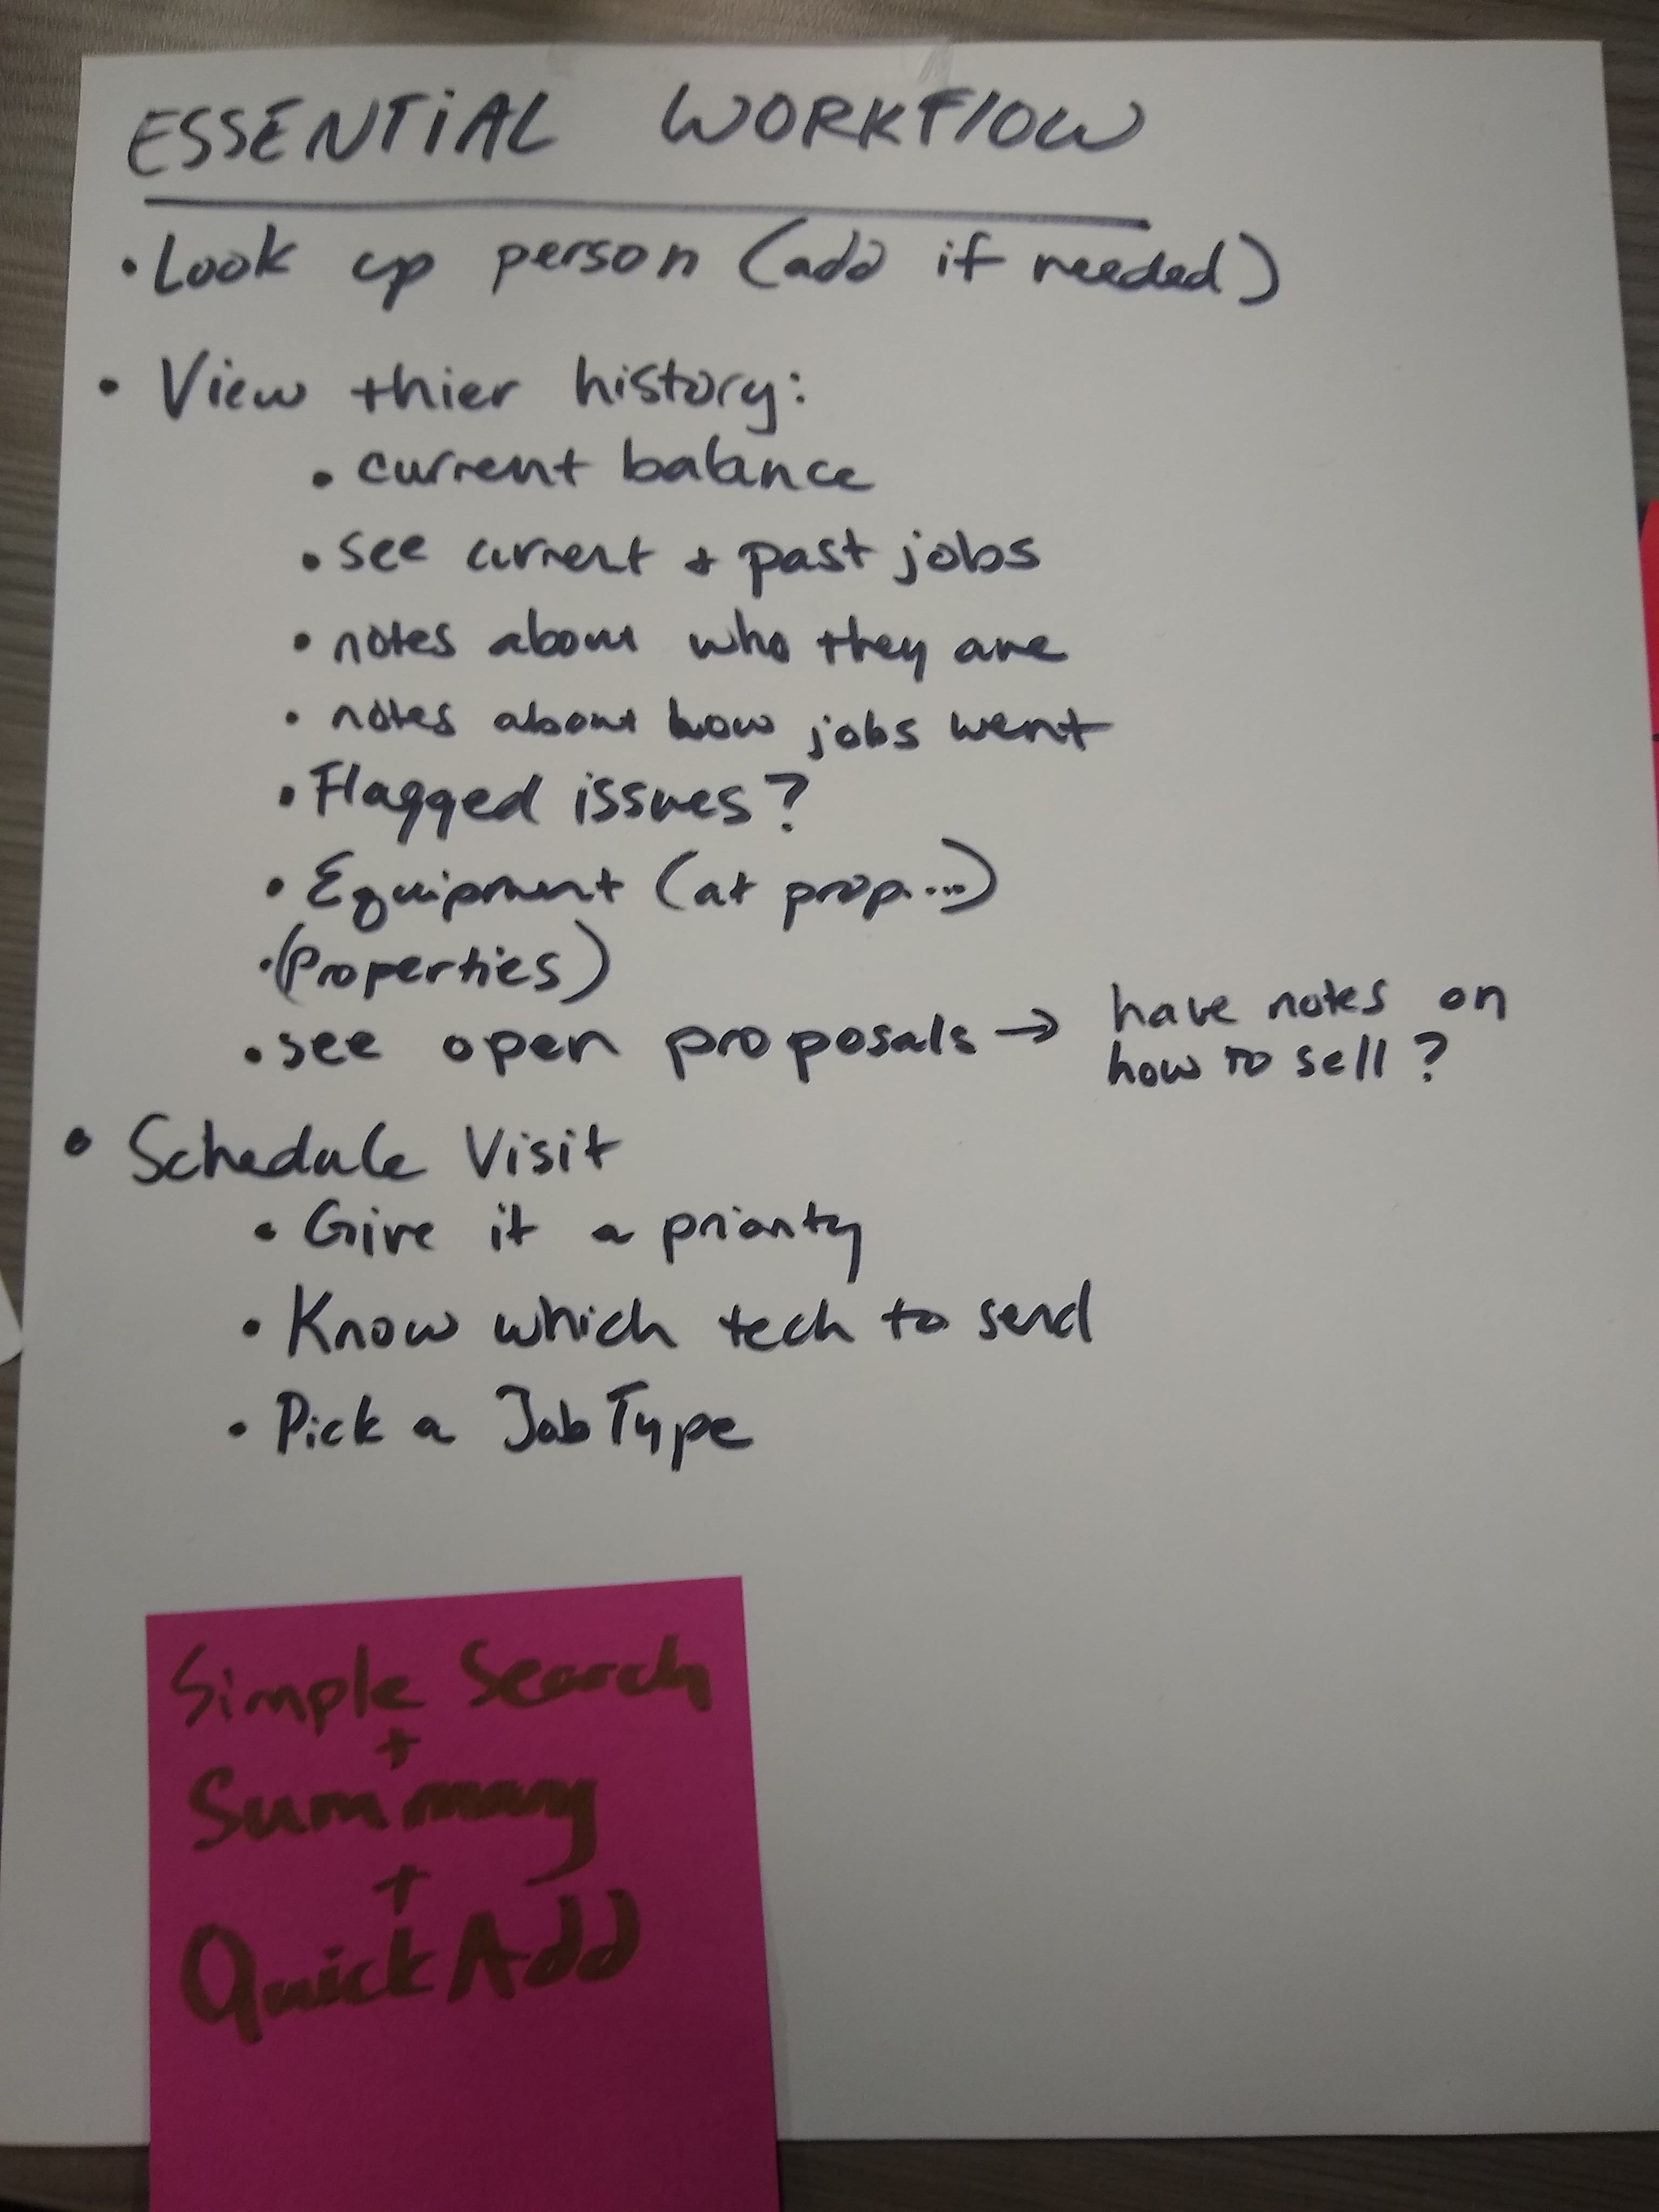 ESSENTIAL WORKFLOW
• Look up person (add if needed)
• View thier history:
• current balance
• see current + past jobs
• notes about who they are
• notes about how jobs went
• Flagged issues?
• Equipment (at prop...)
• (Properties)
• see open proposals → have notes on
how to sell?
• Schedule Visit
• Give it a priority
• Know which tech to send
• Pick a Job Type
Simple Search
+
Summary
+
Quick Add